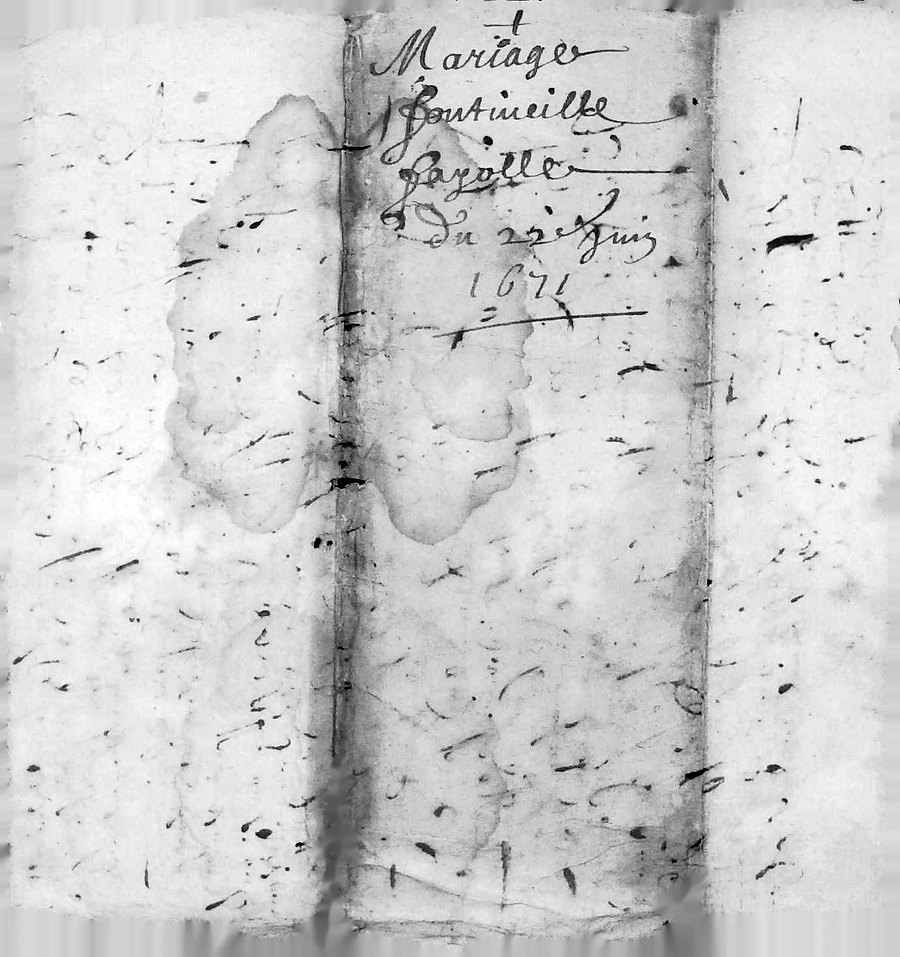 Mariage
fontineille
fayolle
Du 22e Juin
1671